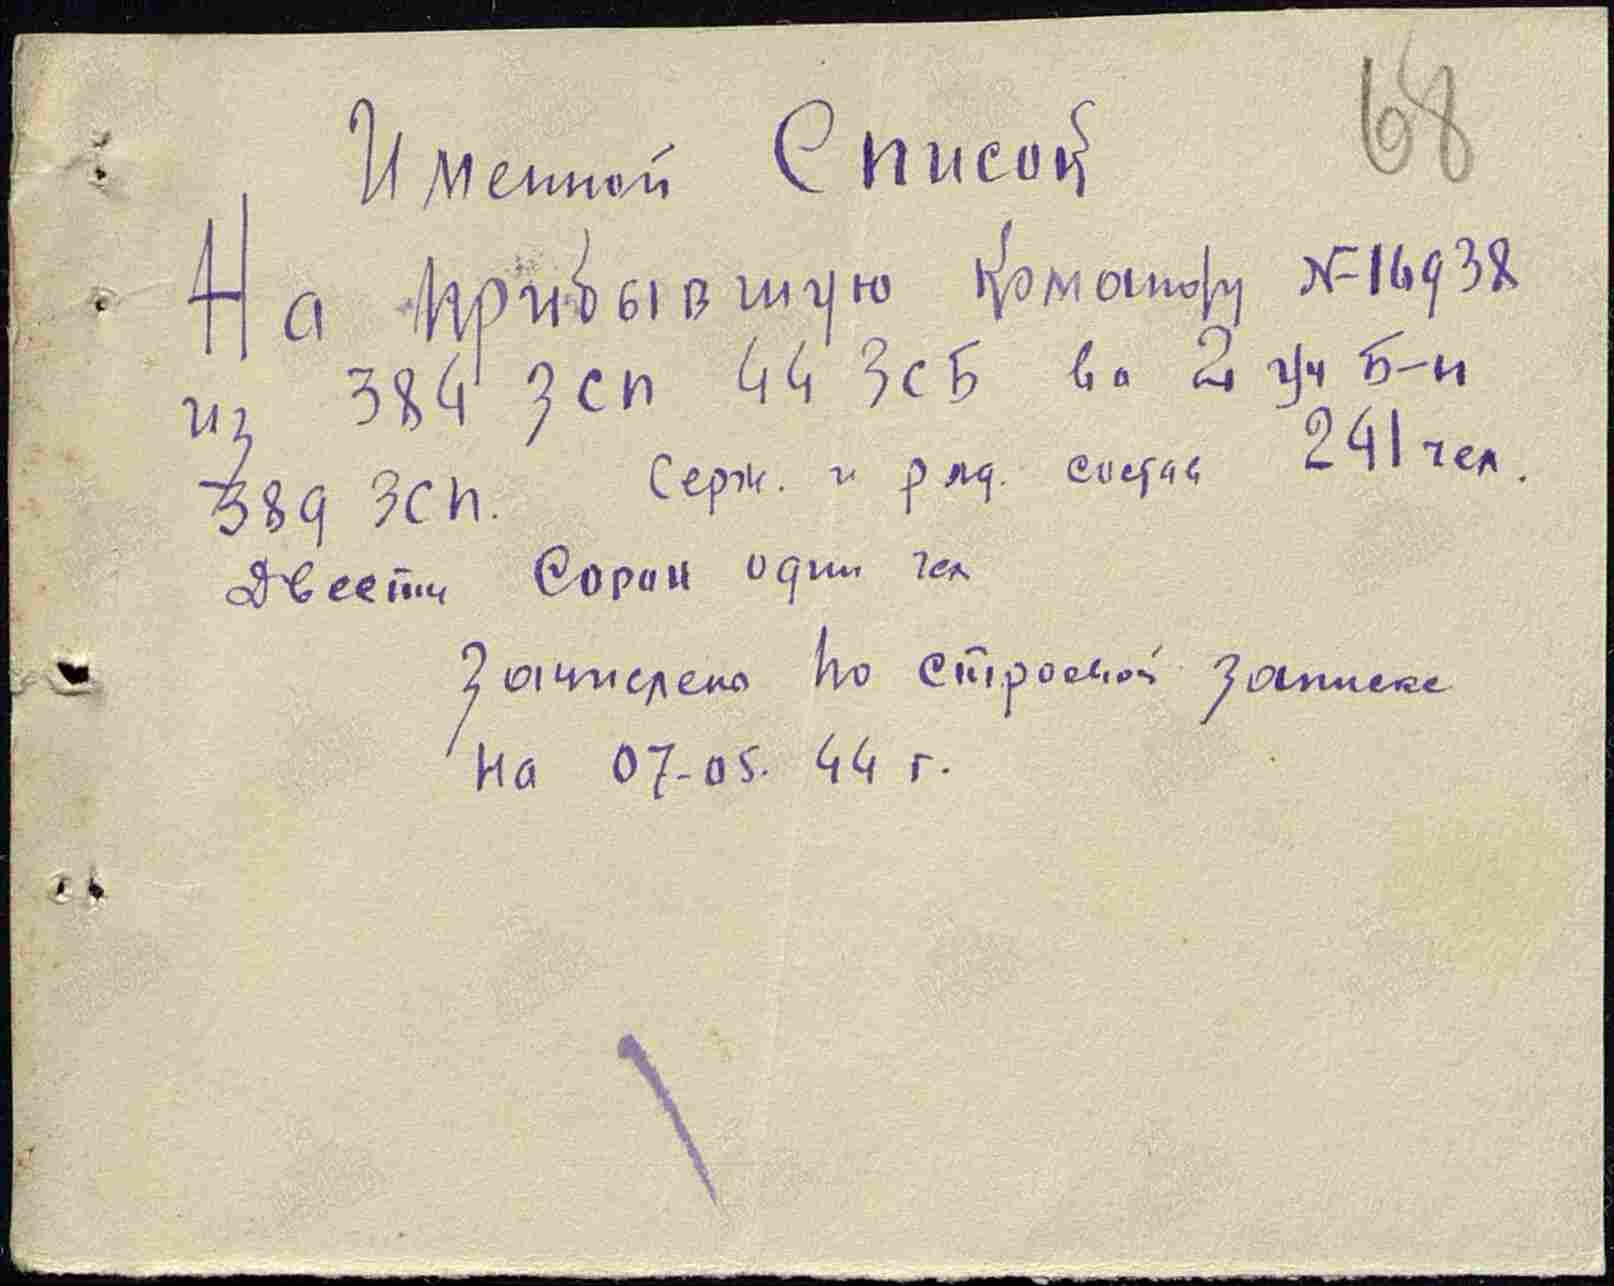 68
Именной Список
На прибывшую команду № 16938
из 384 ЗСП 44 ЗСБ во 2 уч Б-н
389 ЗСП. Серж. и ряд. состав 241 чел.
Двести Сорок один чел
Зачислено по строевой записке
на 07-05. 44 г.